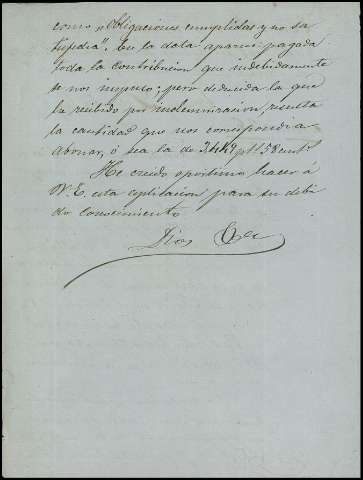 como "obligaciones cumplidas y no sa
tisfechas". En la data aparece pagada
toda la contribucion que indebidamente
se nos impuso; pero deducida la que
he recibido por indemnizacion, resulta
la cantidad que nos correspondia
abonar, ó sea la de 3449 pts 58 cents
He creido oportuno hacer á
V. E. esta esplicacion para su debi
do conocimiento
Dios &a